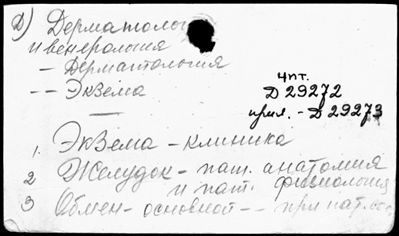 Д) Дерматология
и венерология
- Дерматология
-- Экзема
чит.
Д 29272
прил. - Д 29273
1. Экзема - клиника
2 Желудок - пат. анатомия
и пат. физиология
3 Обмен - основной -- при пат.